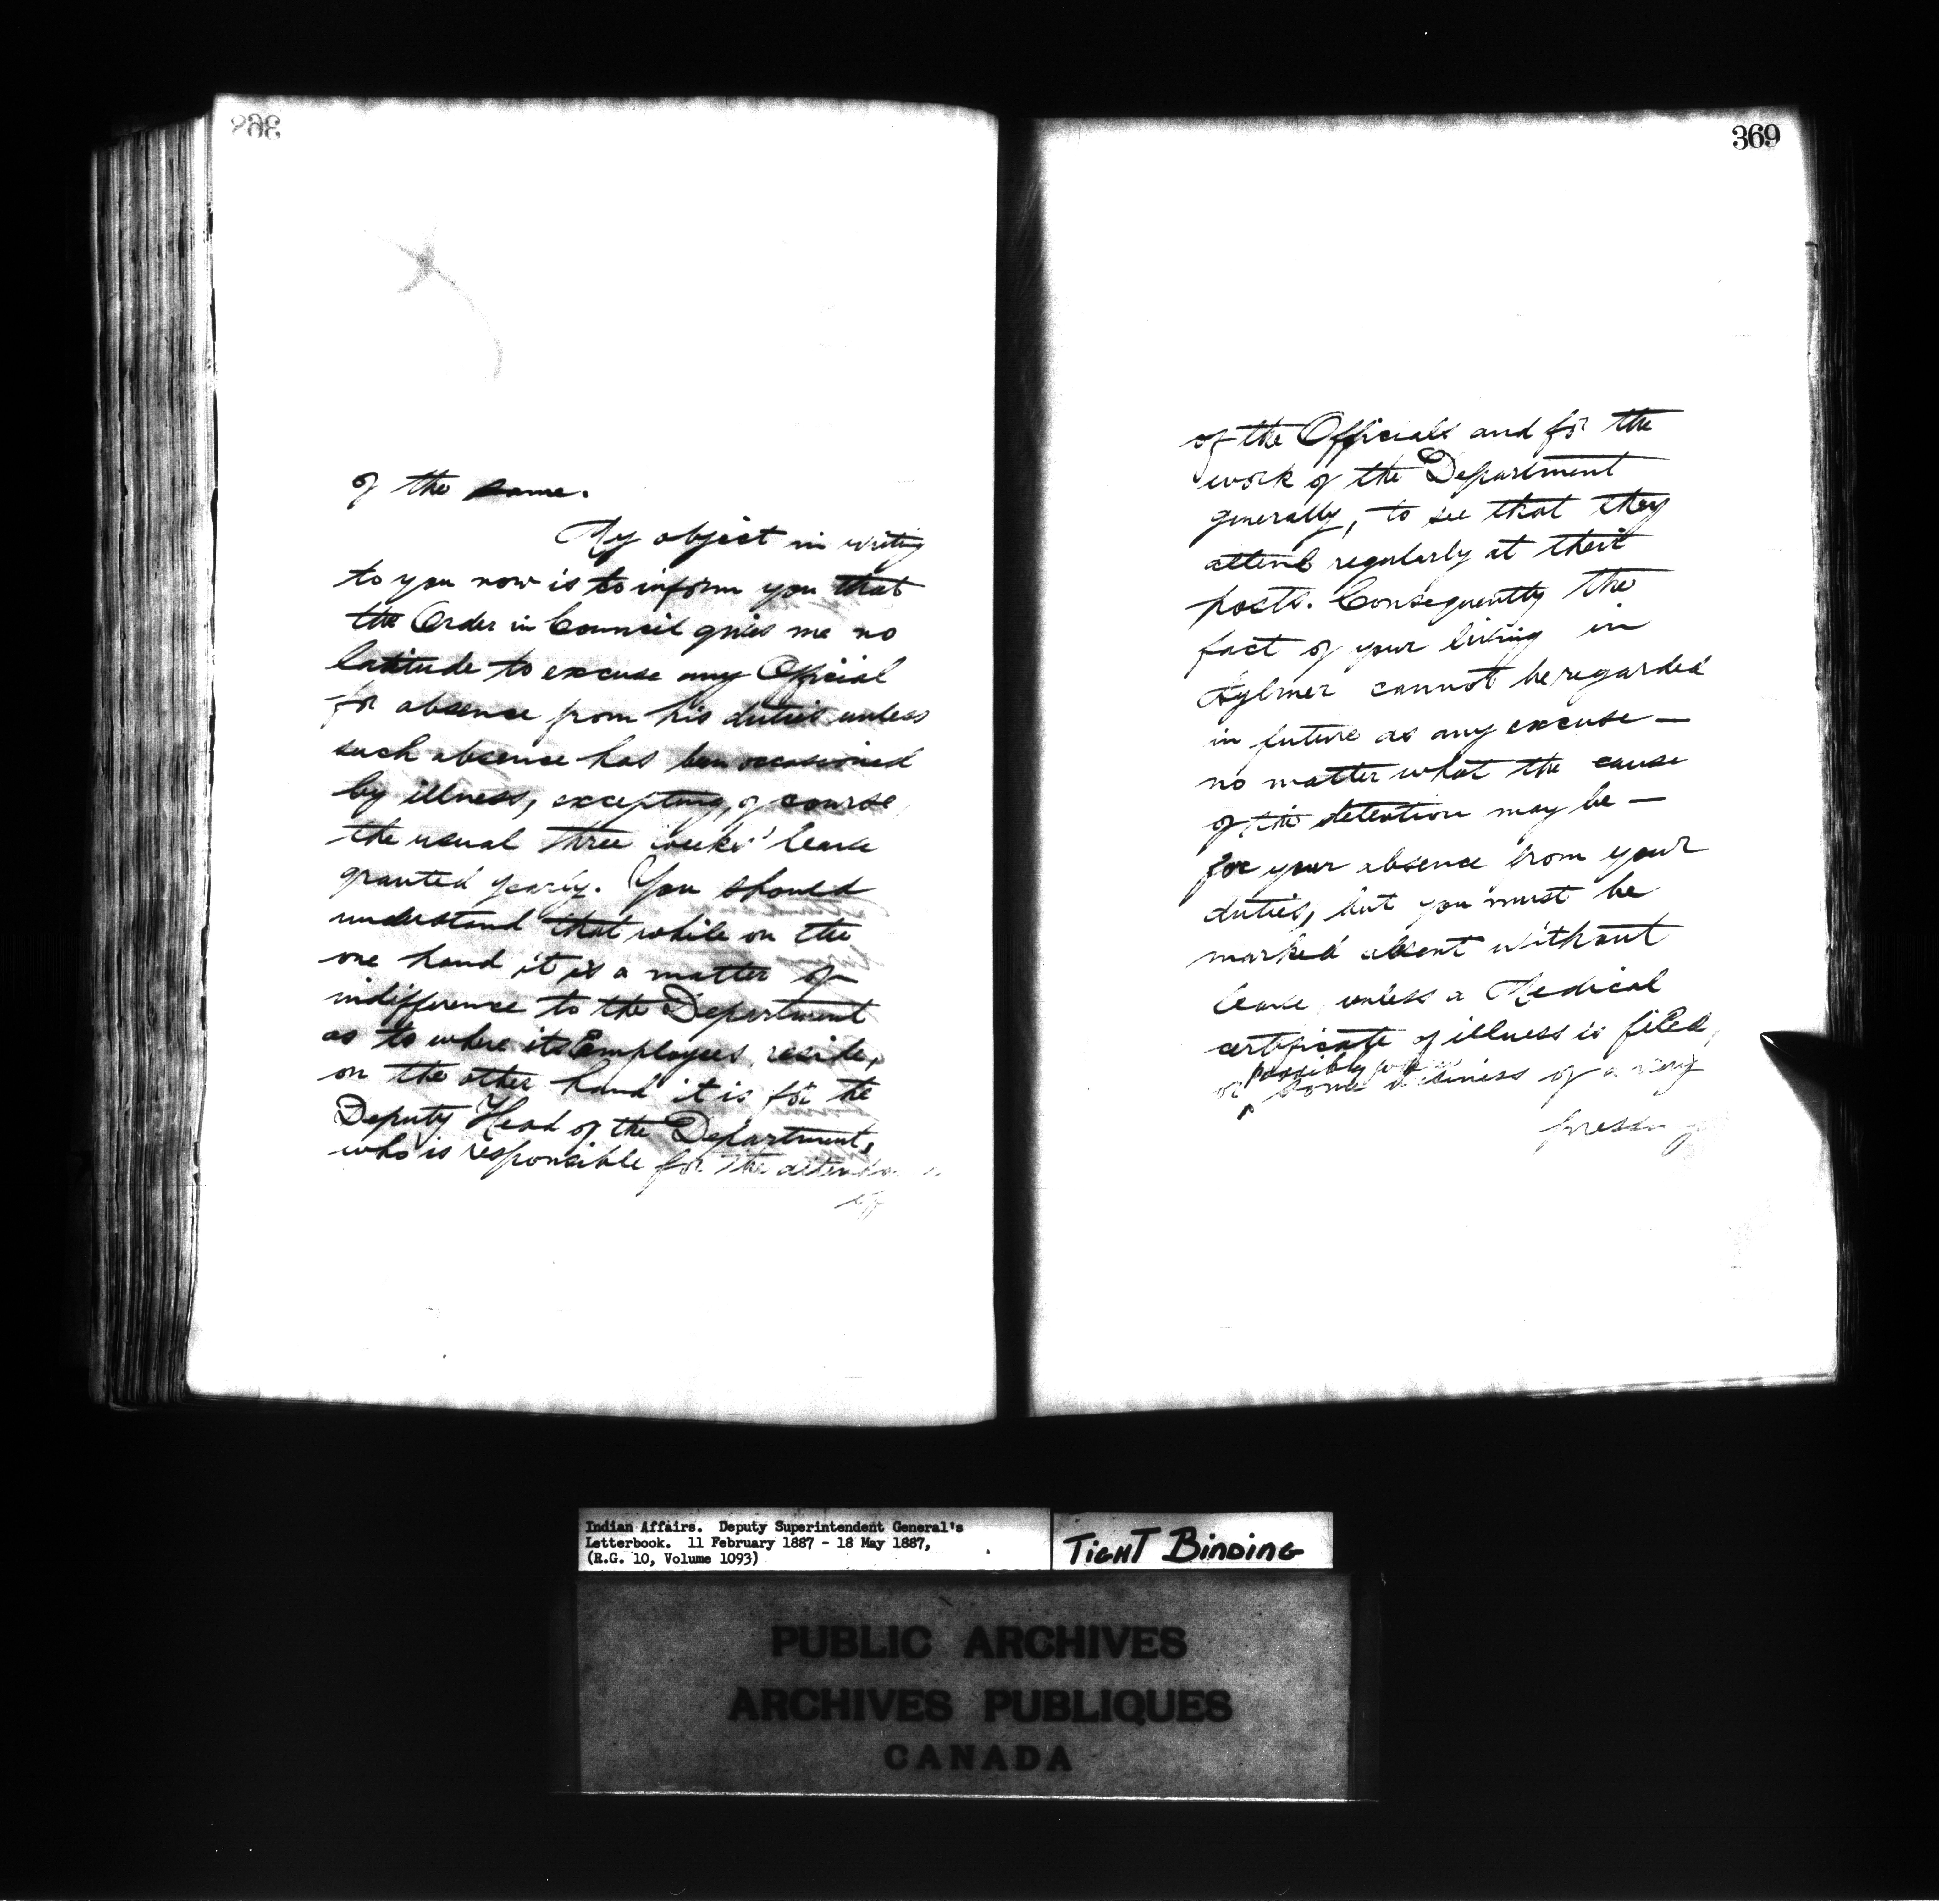 368
of the same.
My object in writing
to you now is to inform you that
the Order in Council gives me no
latitude to excuse any Official
for absence from his duties unless
such absence has been occasioned
by illness, excepting, of course,
the usual three weeks' leave
granted yearly. You should
understand that while on the
one hand it is a matter of
indifference to the Department
as to where its Employees reside,
on the other hand it is for the
Deputy Head of the Department,
who is responsible for the attendance
of
369
of the Officials and for the
work of the Department
generally, to see that they
attend regularly at their
posts. Consequently the
fact of your living in
Aylmer cannot be regarded
in future as any excuse —
no matter what the cause
of the detention may be —
for your absence from your
duties, but you must be
marked absent without
leave, unless a Medical
certificate of illness is filed,
possibly
or some business of a very
pressing
Indian Affairs. Deputy Superintendent General's
Letterbook. 11 February 1887 - 18 May 1887,
(R.G. 10, Volume 1093)
TIGHT BINDING
PUBLIC ARCHIVES
ARCHIVES PUBLIQUES
CANADA